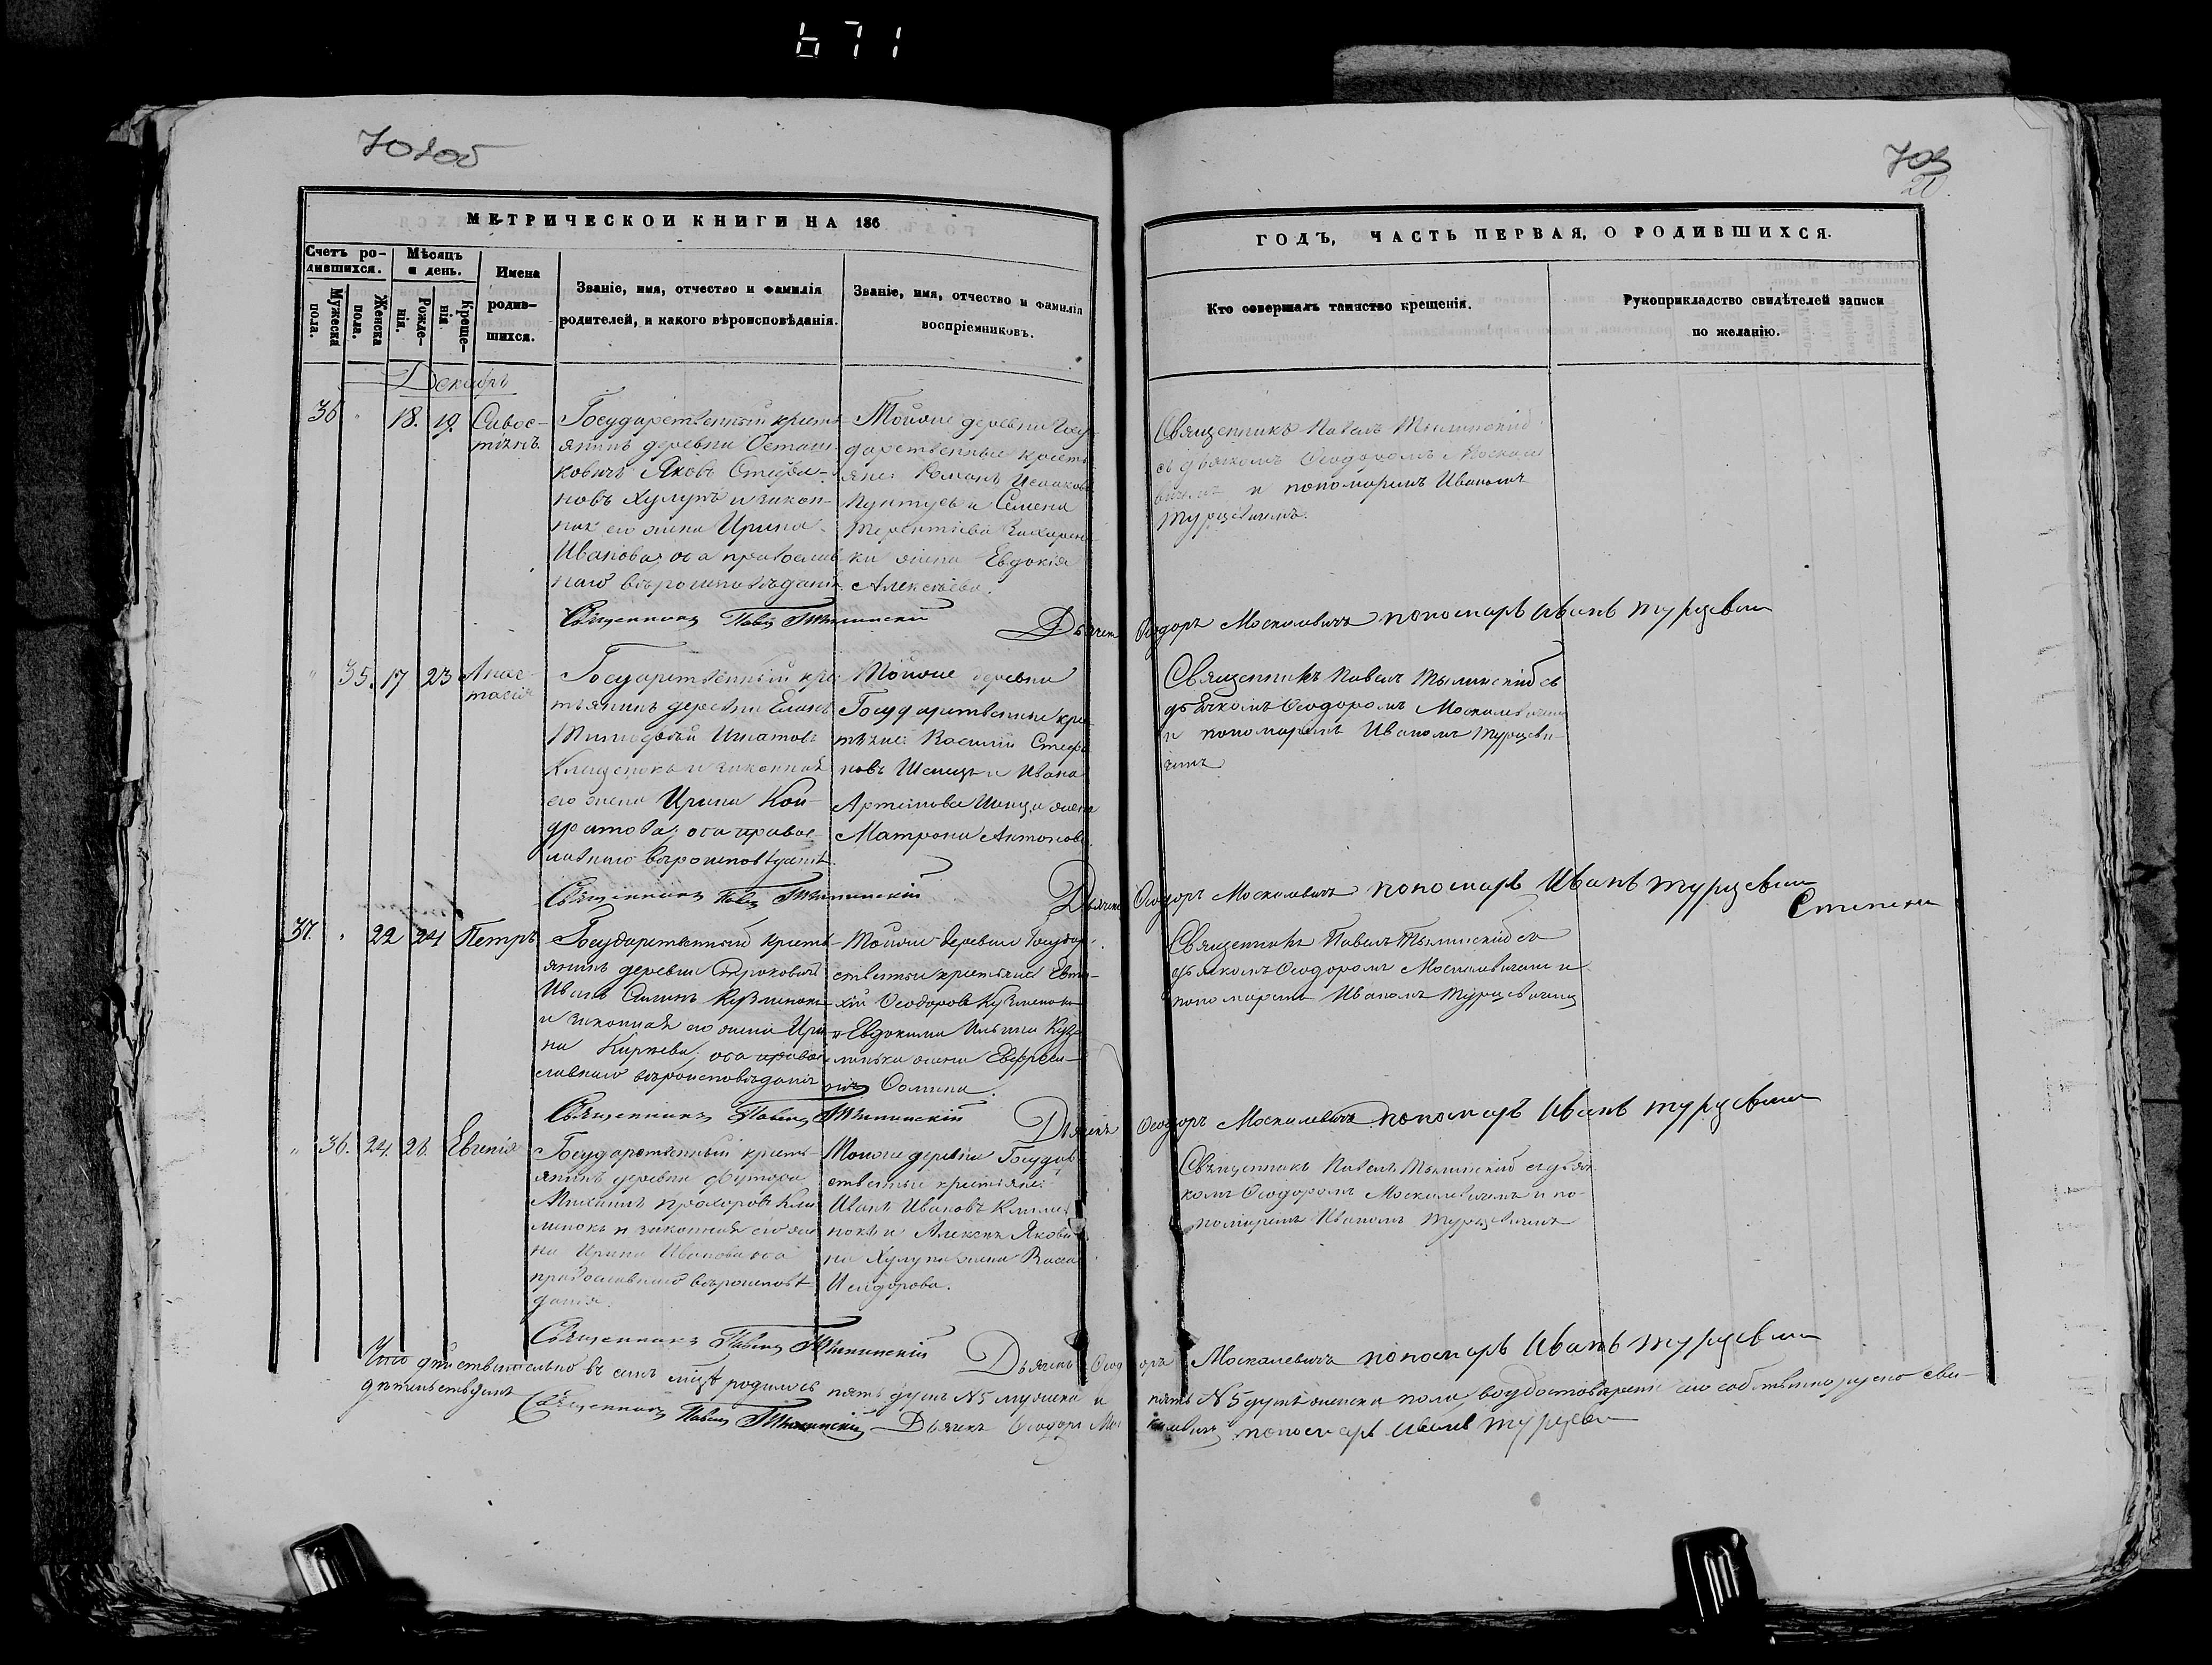 671
702об
703
20.
МЕТРИЧЕСКОЙ КНИГИ НА 186
Счетъ ро-
дившихся.
Мужеска
пола.
Женска
пола.
Мѣсяцъ
и день.
Рожде-
нія.
Креще-
нія
Имена
родив-
шихся.
Званіе, имя, отчество и фамилія
родителей, и какого вѣроисповѣданія.
Званіе, имя, отчество и фамилія
воспріемниковъ.
ГОДЪ, ЧАСТЬ ПЕРВАЯ, О РОДИВШИХСЯ.
Кто совершалъ таинство крещенія.
Рукоприкладство свидѣтелей записи
по желанію.
Декабрь
36 " 18. 19. Сивос-
тіянъ.
Государственный кресть-
янинъ деревни Осташ-
ковичъ Яковъ Стефа-
новъ Хулупъ и закон-
ная его жена Ирина
Иванова, оба православ-
наго вѣроисповѣданія.
Тойже деревни Госу-
дарственные кресть-
яне: Романъ Исаковъ
и Семена
Терентіева Захарен-
ки жена Евдокія
Алексѣева.
Священникъ Павелъ Тылинскій
съ дьячкомъ Ѳеодоромъ Москале-
вичемъ и пономаремъ Иваномъ
Турцевичемъ.
Священникъ Павелъ Тылинскій Дьячекъ Ѳеодоръ Москалевичъ пономарь Иванъ Турцевич
" 35. 17 23 Анас-
тасія
Государственный кре-
стьянинъ деревни
Тимофѣй Игнатовъ
Клещенокъ и законная
его жена Ирина Кон-
дратова; оба правос-
лавнаго вѣроисповѣданія.
Тойже деревни
Государственные кре-
стьяне: Василій Стефа-
новъ Шепицъ и Ивана
Артемова Шепица жена
Матрона Антонова.
Священникъ Павелъ Тылинскій съ
дьячкомъ Ѳеодоромъ Москалевичемъ
и пономаремъ Иваномъ Турцеви-
чемъ
Священникъ Павелъ Тылинскій Дьячекъ Ѳеодоръ Москалевичъ пономарь Иванъ Турцевич
37. " 22 24 Петръ
Государственный кресть-
янинъ деревни
Иванъ Кузменокъ
и законная его жена Ири-
на Кирѣева; оба право-
славнаго вѣроисповѣданія
Тойже деревни Государ-
ственные крестьяне: Евти-
хій Ѳеодоровъ Кузменокъ
и Евдокима Ильина Куз-
менька жена Евфроси-
нія Ѳомина.
Священникъ Павелъ Тылинскій съ
дьячкомъ Ѳеодоромъ Москалевичемъ и
пономаремъ Иваномъ Турцевичемъ
Священникъ Павелъ Тылинскій Дьячекъ Ѳеодоръ Москалевичъ пономарь Иванъ Турцевич
" 36. 24. 26. Евгенія
Государственный кресть-
янинъ деревни Футора
Михаилъ Прохоровъ Кли-
менокъ и законная его же-
на Ирина Иванова оба
православнаго вѣроисповѣ-
данія.
Тойже деревни Государ-
ственные крестьяне:
Иванъ Ивановъ Климе-
нокъ и Алексѣя Якови-
на Хулупа жена Васса
Исидорова.
Священникъ Павелъ Тылинскій съ дьяч-
комъ Ѳеодоромъ Москалевичемъ и по-
номаремъ Иваномъ Турцевичемъ
Священникъ Павелъ Тылинскій Дьячекъ Ѳеодоръ Москалевичъ пономарь Иванъ Турцевич
Что дѣйствительно въ семъ мцѣ родилось пять душъ №5 мужеска и пять №5 душъ женска пола, въ удостовѣреніе сего собственноручно сви-
дѣтельствуемъ Священникъ Павелъ Тылинскій Дьячекъ Ѳеодоръ Москалевичъ пономарь Иванъ Турцевич